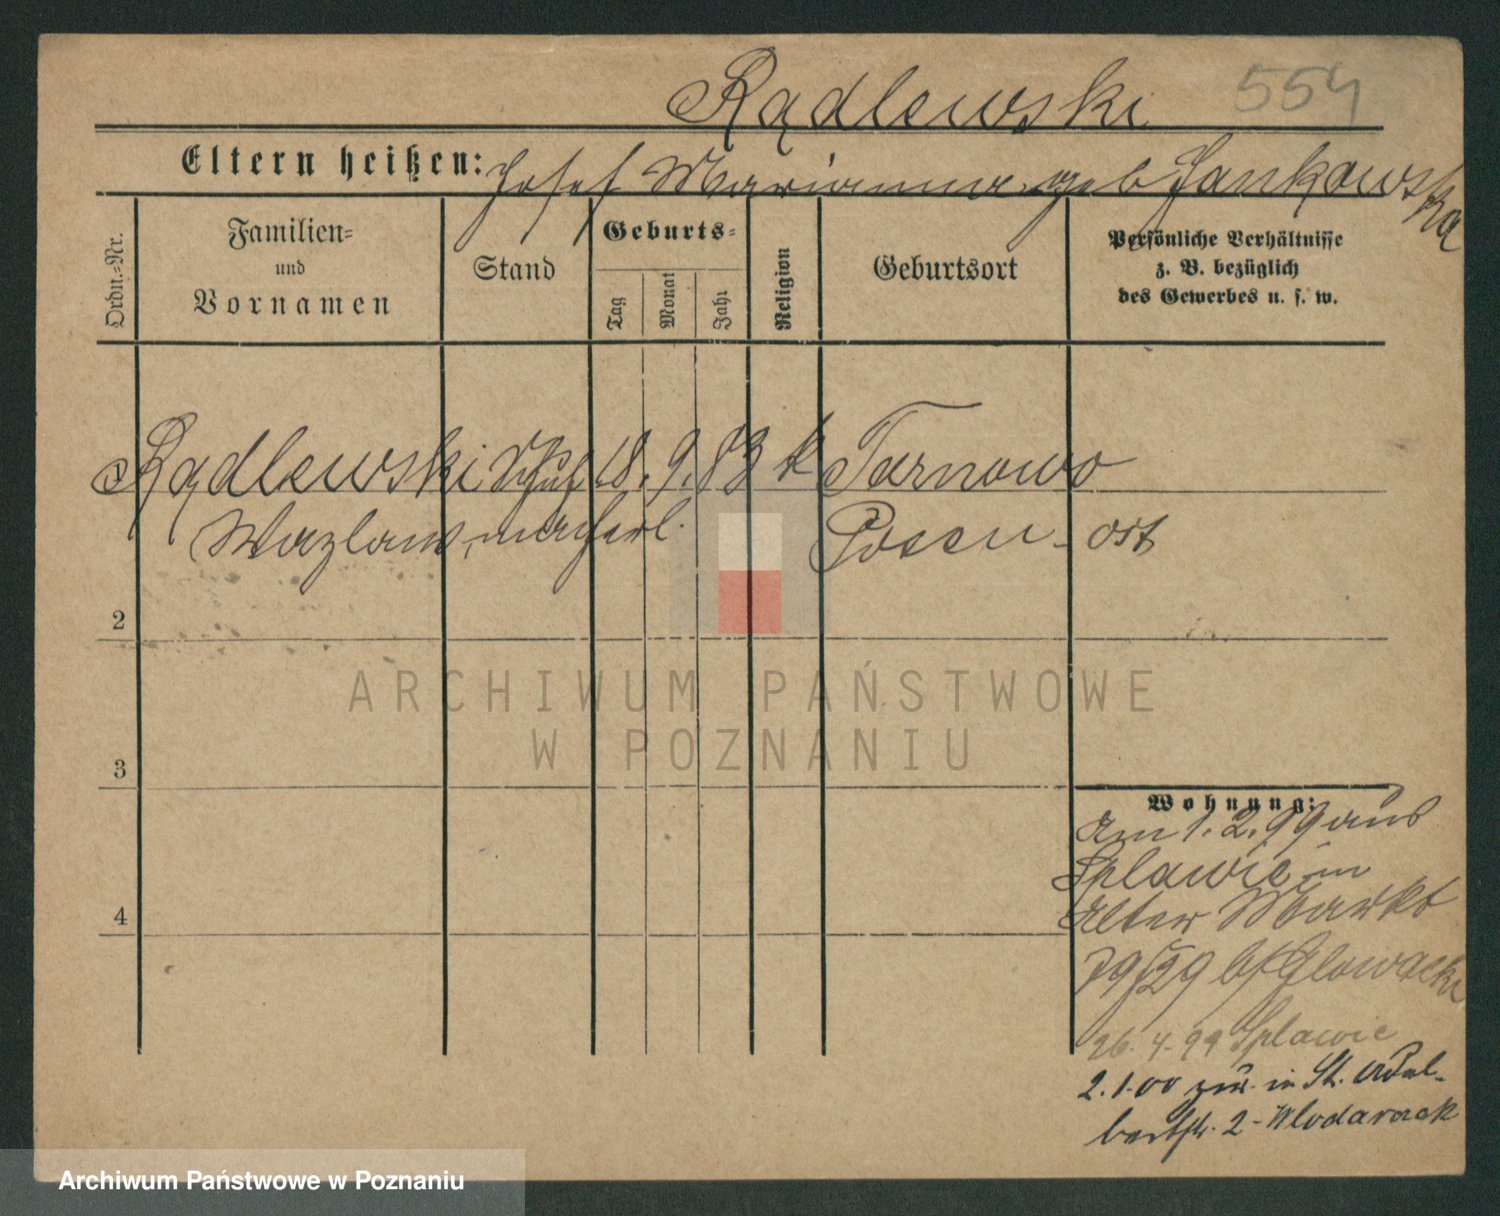 Rądlewski 554
Eltern heißen: Josef Marianna geb Jankowska
Ordn.=Nr.
Familien=
und
Vornamen
Stand
Geburts=
Tag
Monat
Jahr
Religion
Geburtsort
Persönliche Verhältnisse
z. B. bezüglich
des Gewerbes u. s. w.
Rądlewski Schuh 18. 9. 83 k Tarnowo
Wazlaw macherl. Posen - ost
2
3
4
Wohnung:
Am 1. 2. 99 aus
Splawie in
Alter Markt
79/29 b/ Glowacki
26. 4. 99 Splawie
2. 1. 00 zur. in St. Adal-
bertstr. 2 - Wlodarack
ARCHIWUM PAŃSTWOWE
W POZNANIU
Archiwum Państwowe w Poznaniu